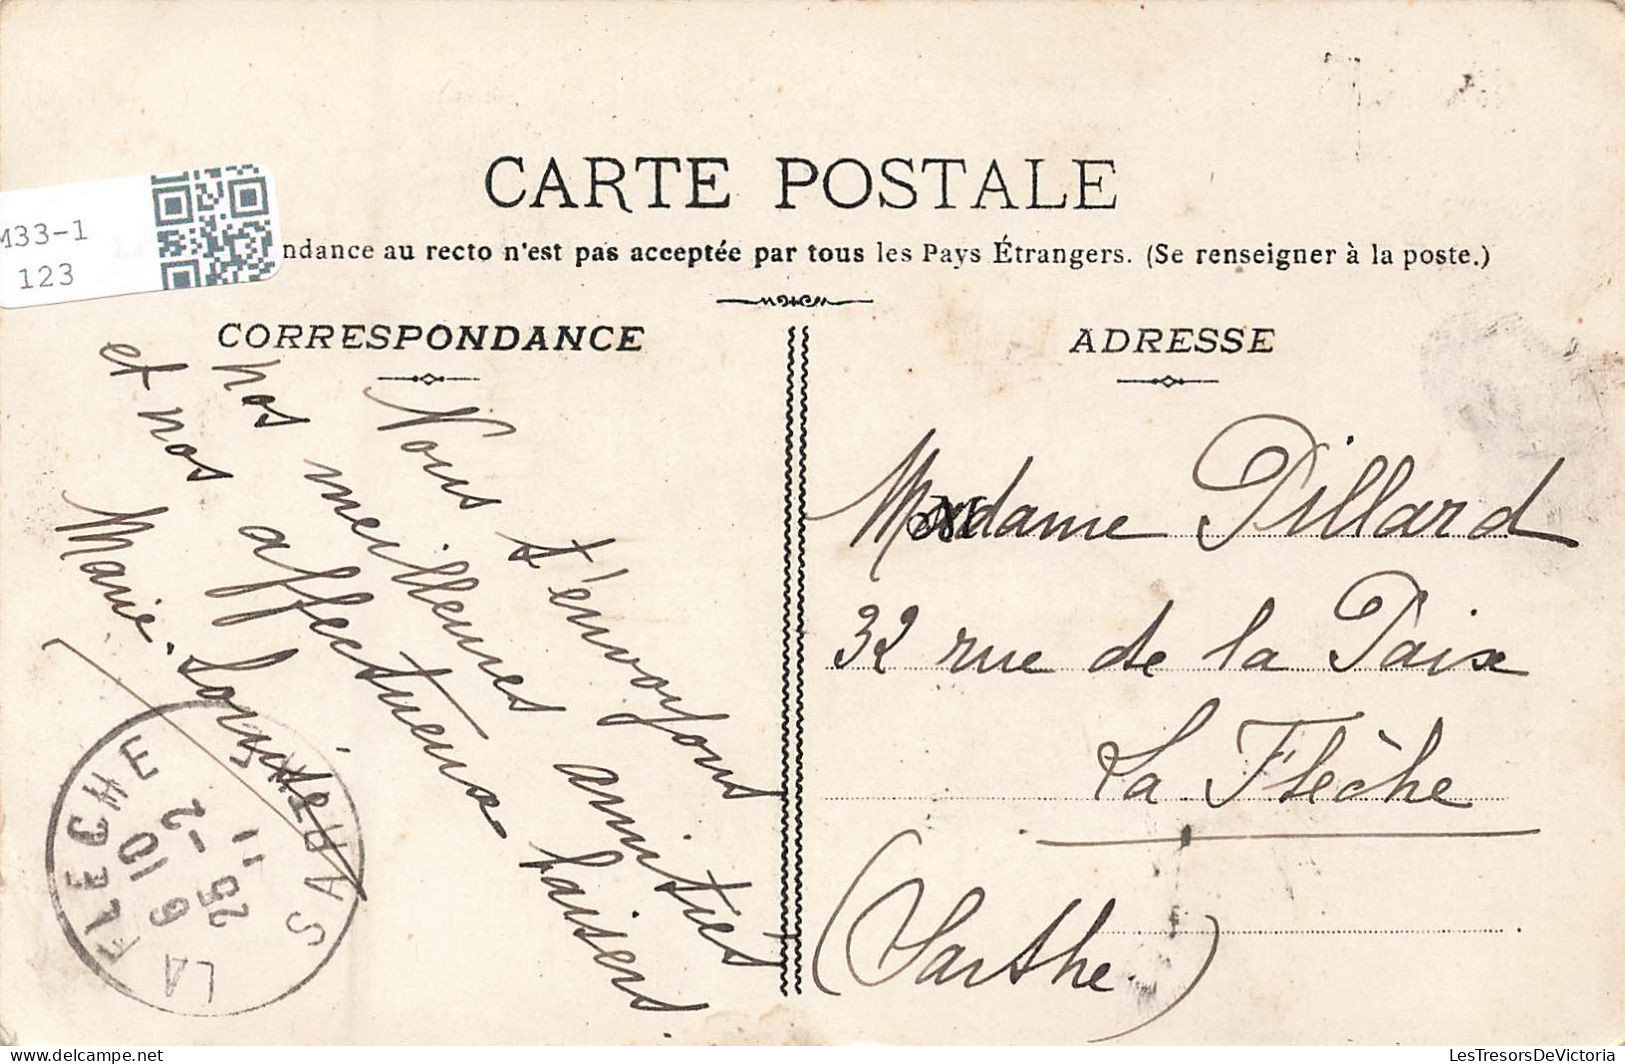 CARTE POSTALE
ndance au recto n'est pas acceptée par tous les Pays Étrangers. (Se renseigner à la poste.)
M33-1
123
CORRESPONDANCE
Nous t'envoyons
nos meilleures amitiés
et nos affectueux baisers.
Marie.
ADRESSE
Madame Pillard
32 rue de la Paix
La Flèche
(Sarthe)
LA FLECHE
SARTHE
LesTresorsDeVictoria